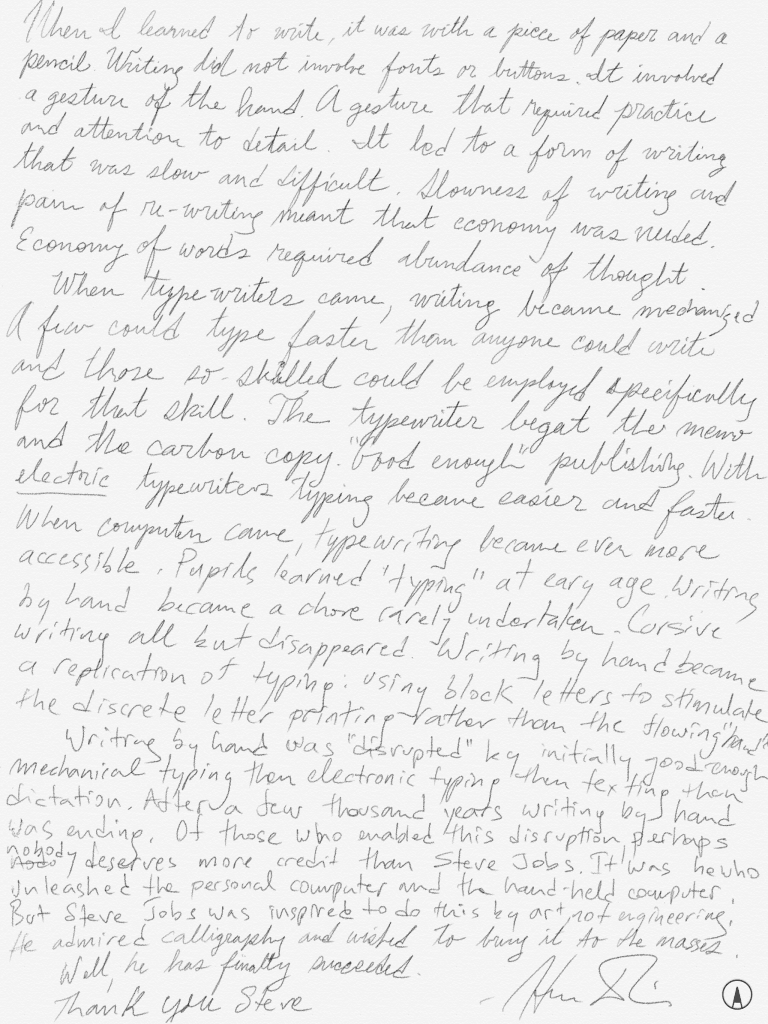 When I learned to write, it was with a piece of paper and a
pencil. Writing did not involve fonts or buttons. It involved
a gesture of the hand. A gesture that required practice
and attention to detail. It led to a form of writing
that was slow and difficult. Slowness of writing and
pain of re-writing meant that economy was needed.
Economy of words required abundance of thought.
When typewriters came, writing became mechanized
A few could type faster than anyone could write
and those so-skilled could be employed specifically
for that skill. The typewriter begat the memo
and the carbon copy. "Good enough" publishing. With
electric typewriters typing became easier and faster.
When computers came, typewriting became even more
accessible. Pupils learned "typing" at eary age. Writing
by hand became a chore rarely undertaken. Cursive
writing all but disappeared. Writing by hand became
a replication of typing: using block letters to stimulate
the discrete letter printing rather than the flowing "hand"
Writing by hand was "disrupted" by initially good enough
mechanical typing then electronic typing then texting then
dictation. After a few thousand years writing by hand
was ending. Of those who enabled this disruption, perhaps
nobody deserves more credit than Steve Jobs. It was he who
unleashed the personal computer and the hand-held computer.
But Steve Jobs was inspired to do this by art, not engineering.
He admired calligraphy and wished to bring it to the masses.
Well, he has finally succeeded.
Thank you Steve